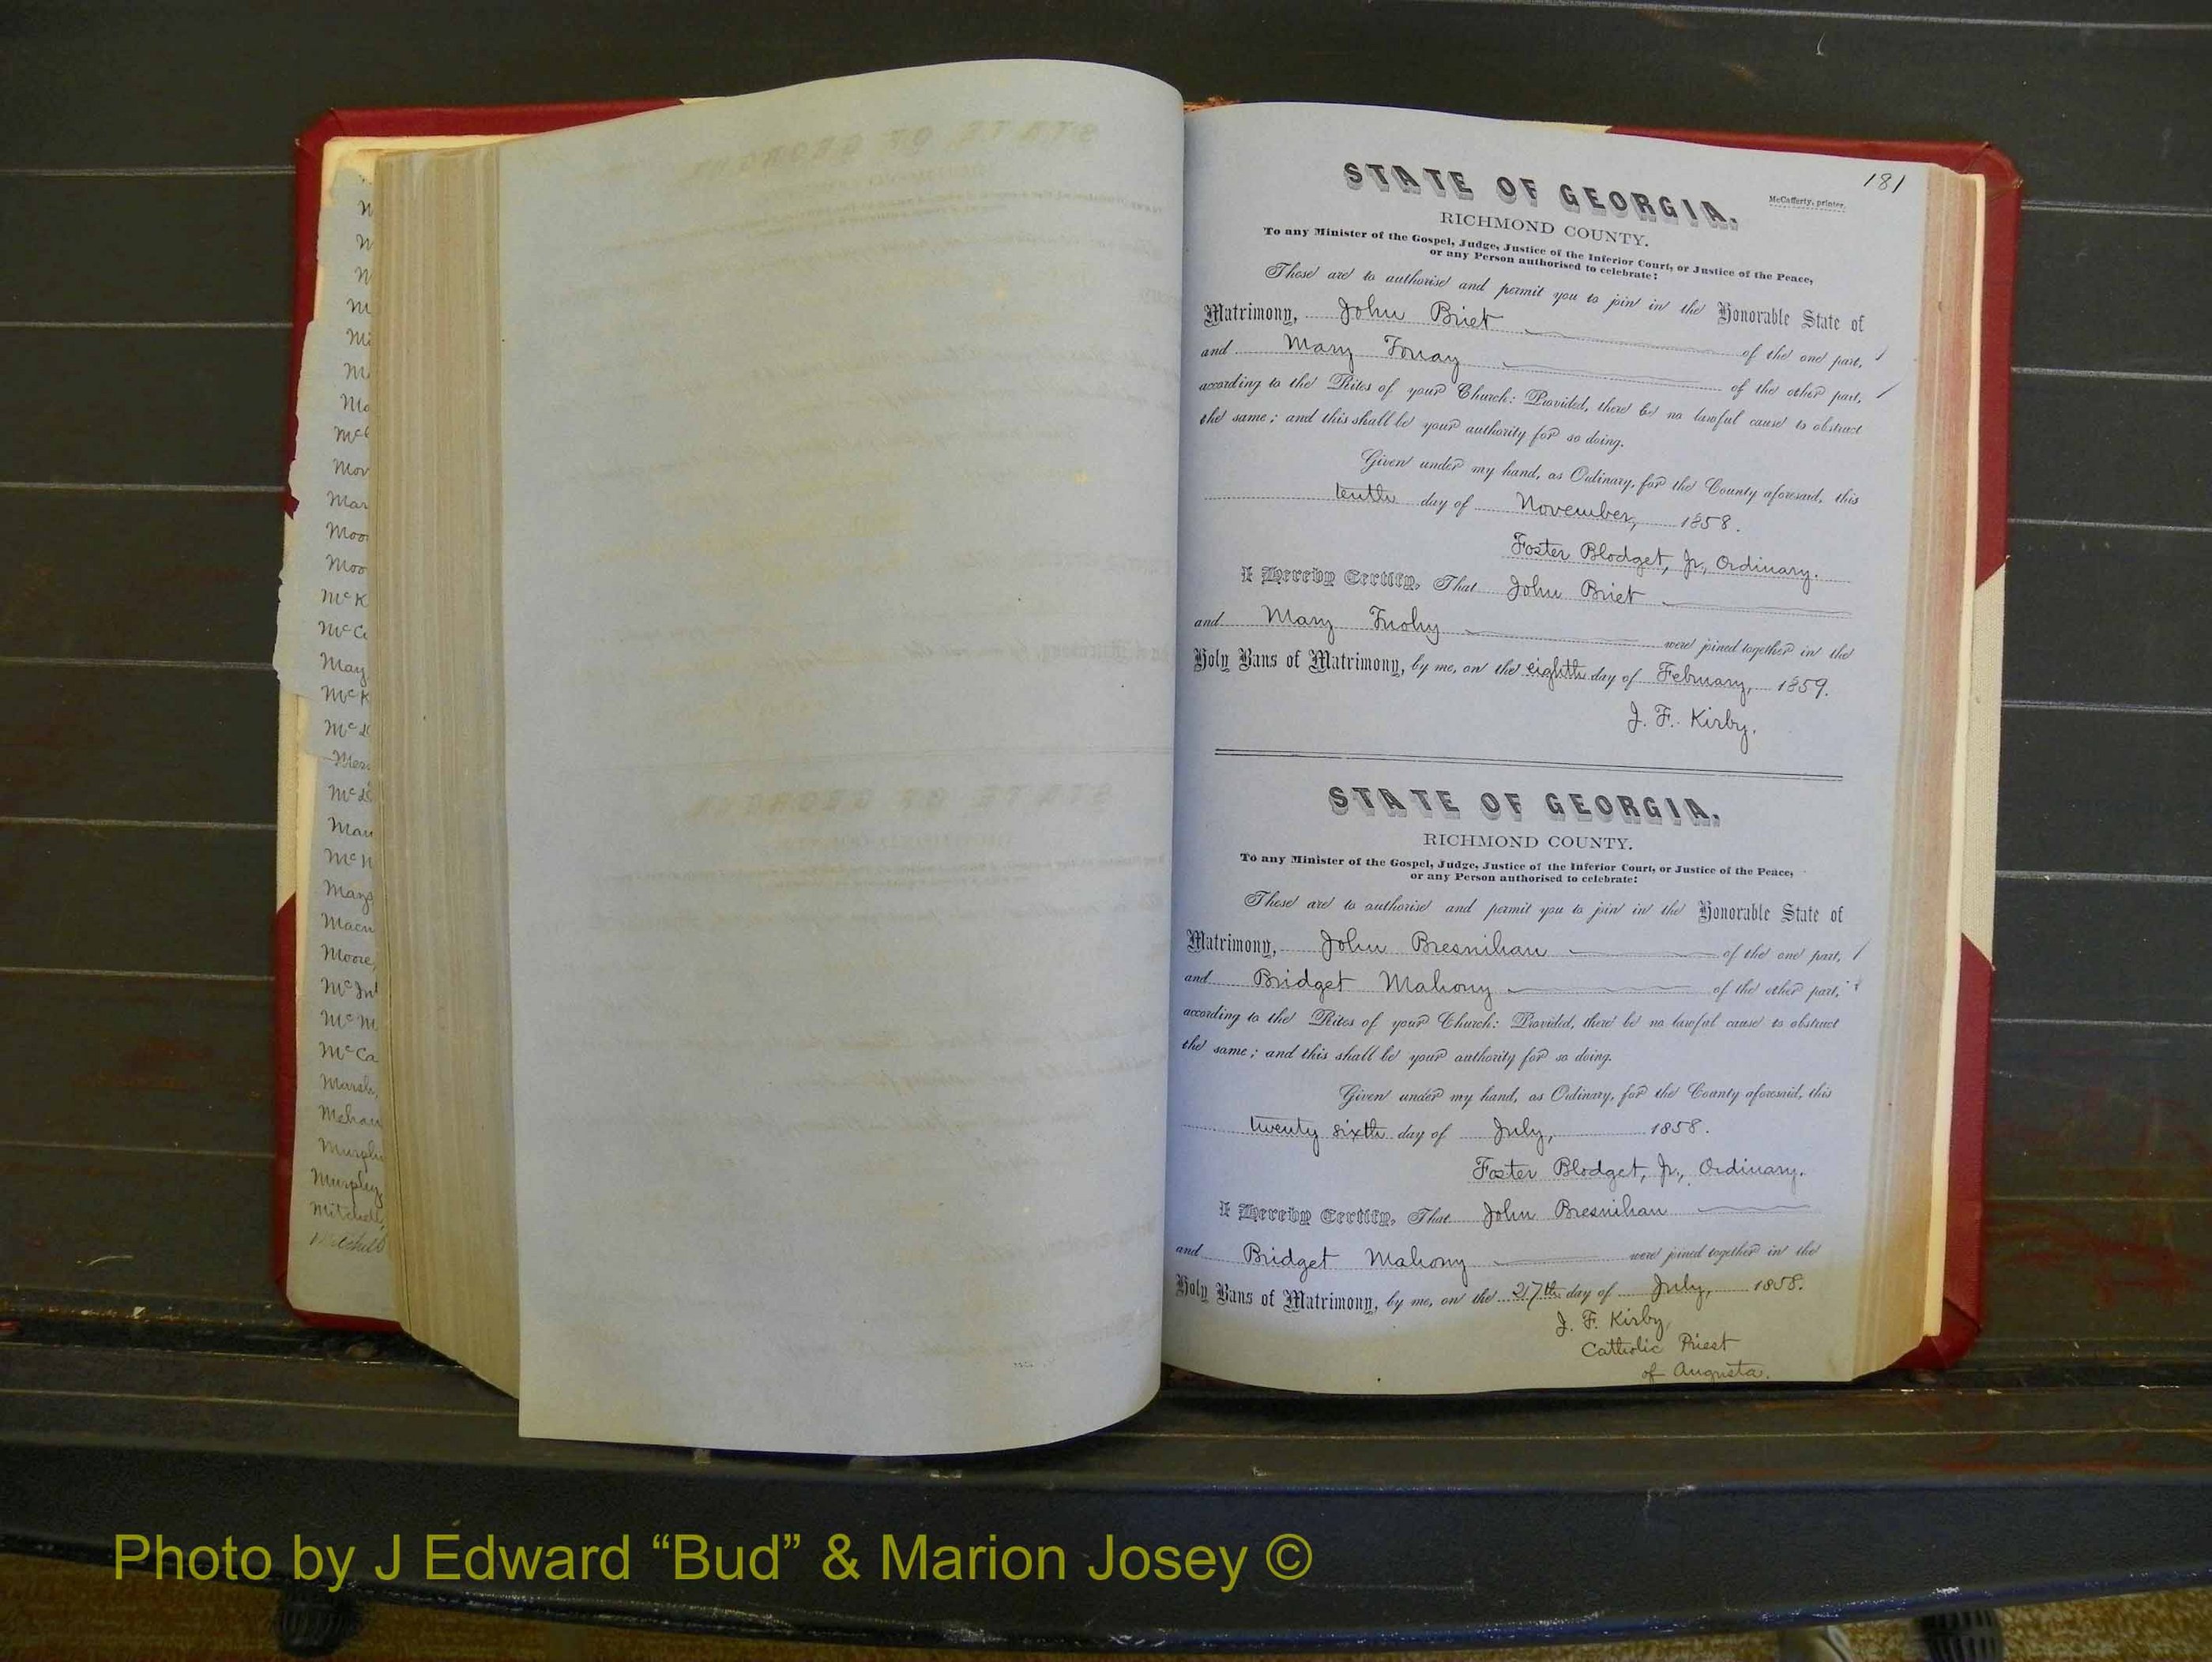 181
STATE OF GEORGIA.
McCafferty, printer.
RICHMOND COUNTY.
To any Minister of the Gospel, Judge, Justice of the Inferior Court, or Justice of the Peace,
or any Person authorised to celebrate:
These are to authorise and permit you to join in the Honorable State of
Matrimony, John Briet of the one part,
and Mary of the other part,
according to the Rites of your Church: Provided, there be no lawful cause to obstruct
the same; and this shall be your authority for so doing.
Given under my hand, as Ordinary, for the County aforesaid, this
tenth day of November, 1858.
Foster Blodget, Jr., Ordinary.
I Hereby Certify, That John Briet
and Mary Tuohy were joined together in the
Holy Bans of Matrimony, by me, on the eighth day of February, 1859.
J. F. Kirby.
STATE OF GEORGIA.
RICHMOND COUNTY.
To any Minister of the Gospel, Judge, Justice of the Inferior Court, or Justice of the Peace,
or any Person authorised to celebrate:
These are to authorise and permit you to join in the Honorable State of
Matrimony, John Bresnihan of the one part,
and Bridget Mahony of the other part,
according to the Rites of your Church: Provided, there be no lawful cause to obstruct
the same; and this shall be your authority for so doing.
Given under my hand, as Ordinary, for the County aforesaid, this
twenty sixth day of July, 1858.
Foster Blodget, Jr., Ordinary.
I Hereby Certify, That John Bresnihan
and Bridget Mahony were joined together in the
Holy Bans of Matrimony, by me, on the 27th day of July, 1858.
J. F. Kirby,
Catholic Priest
of Augusta.
Photo by J Edward “Bud” & Marion Josey ©